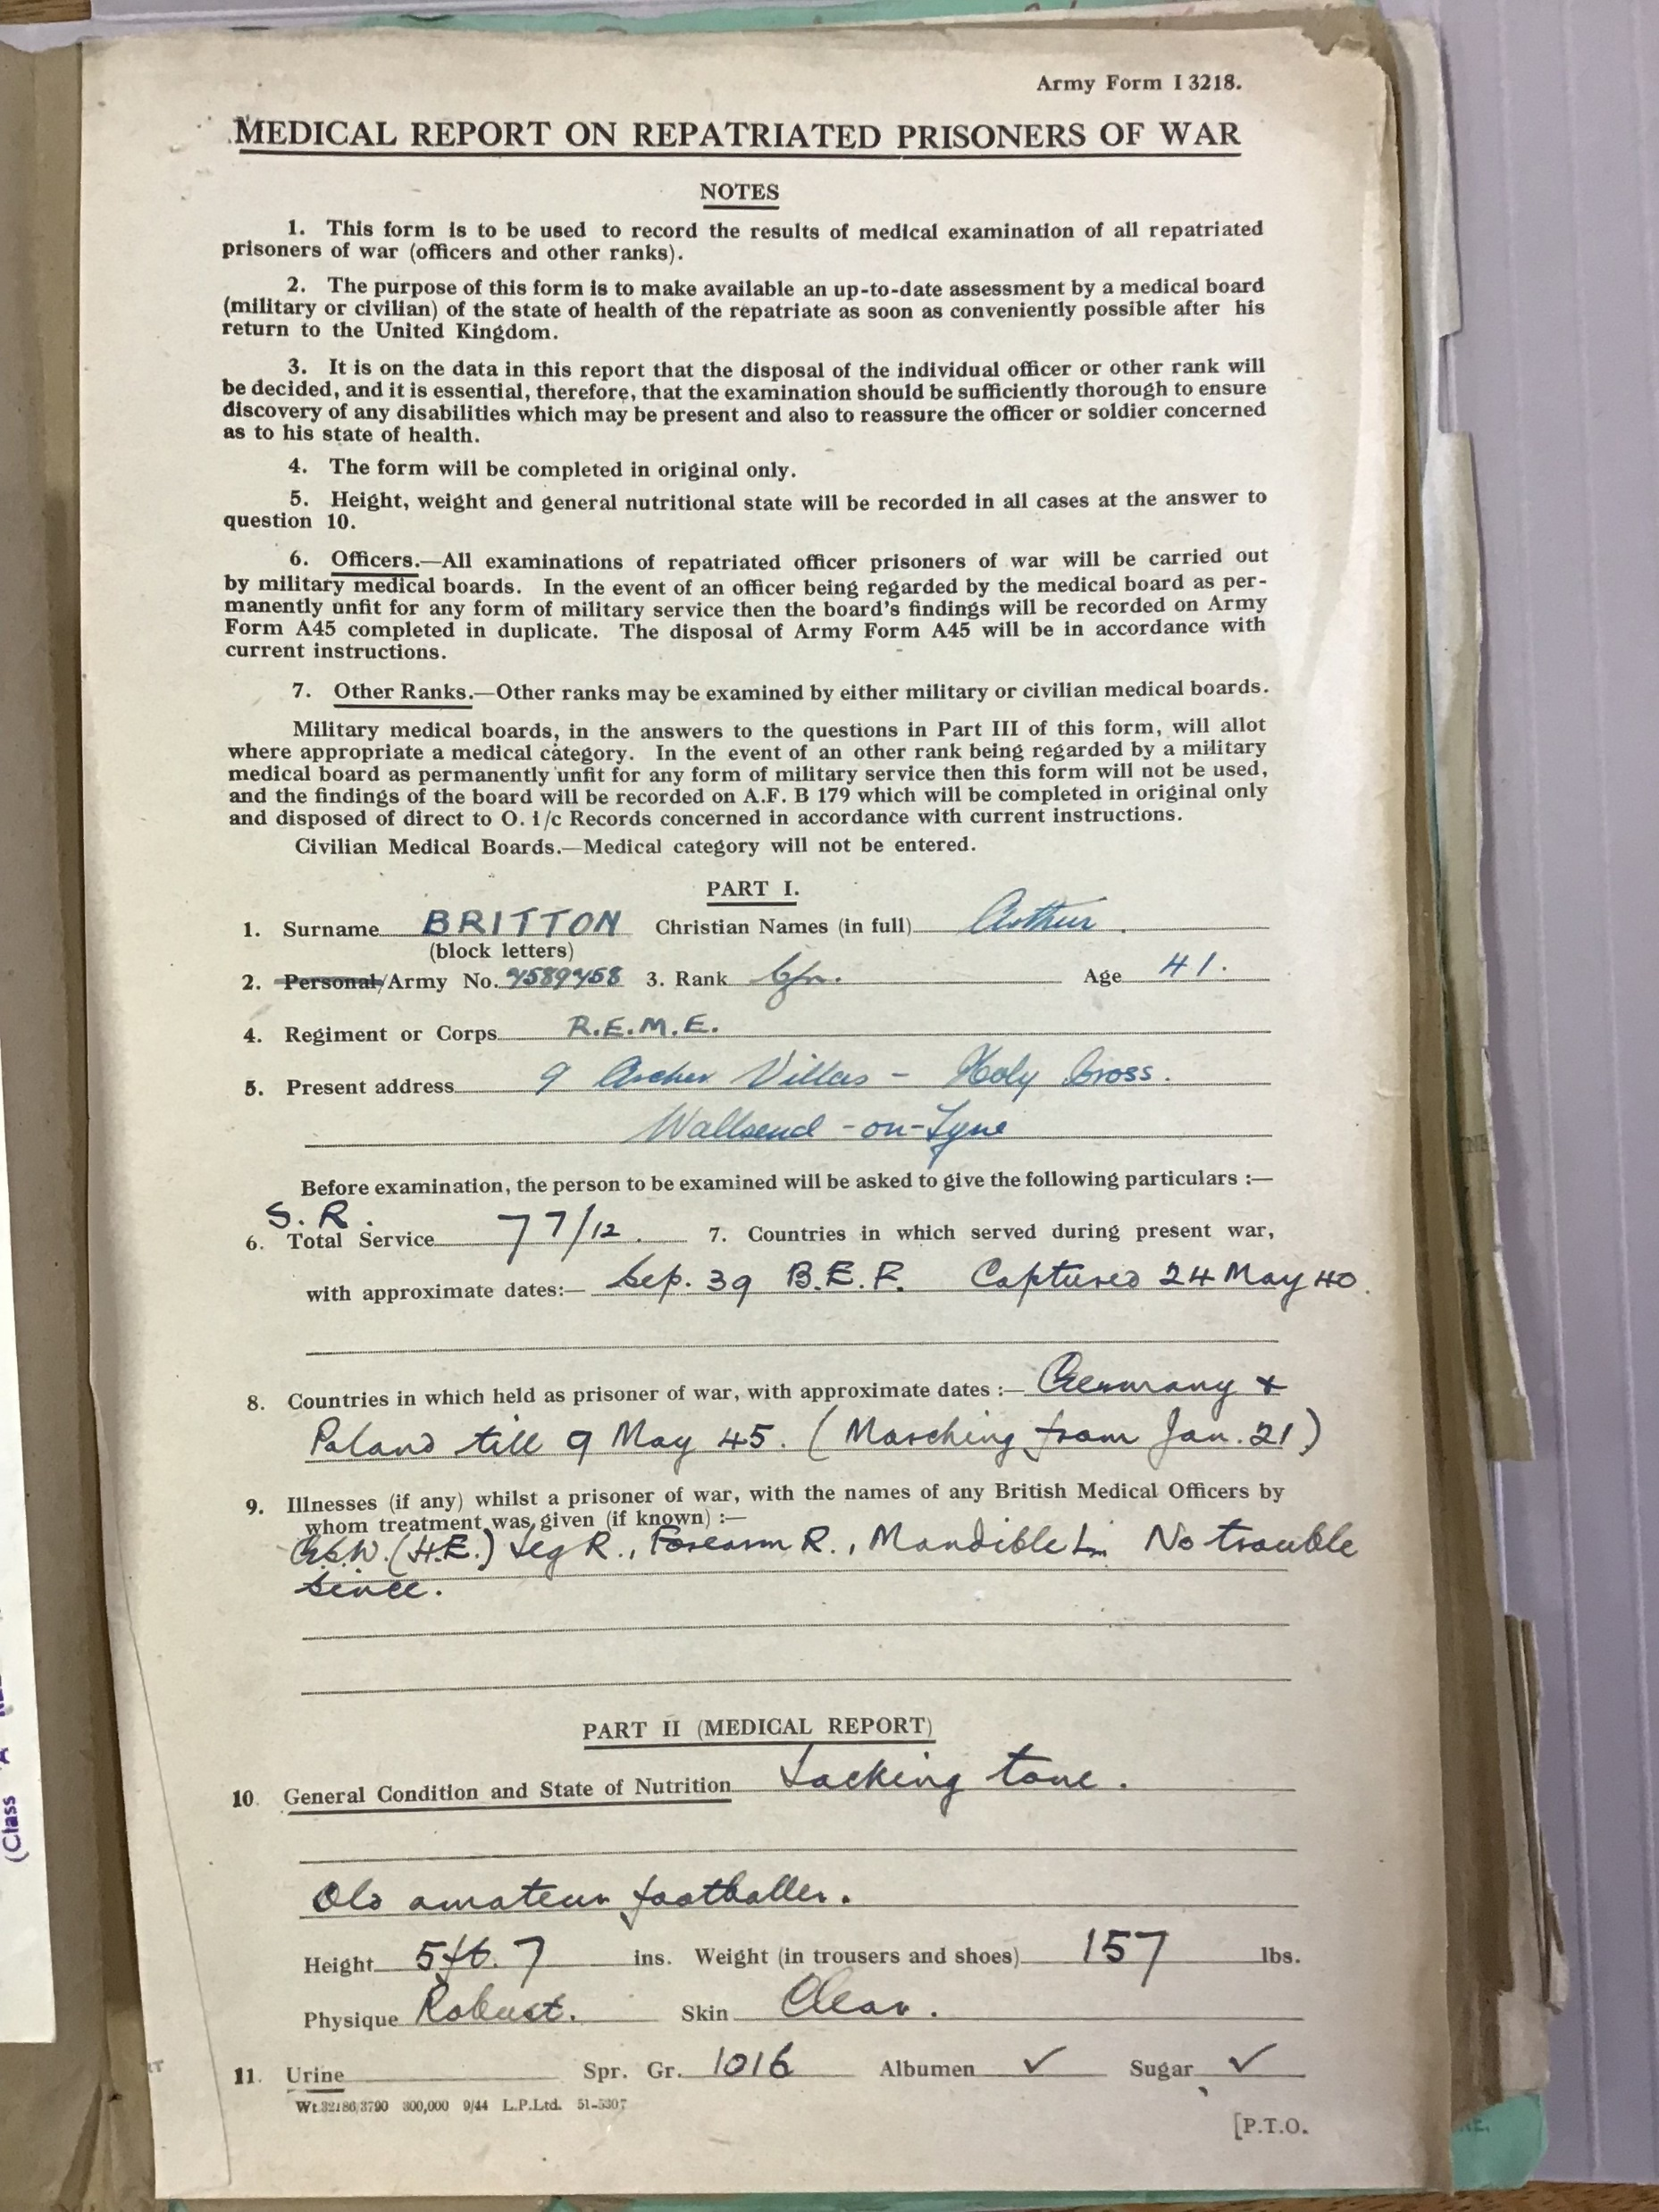 Army Form I 3218.
MEDICAL REPORT ON REPATRIATED PRISONERS OF WAR
NOTES
1. This form is to be used to record the results of medical examination of all repatriated
prisoners of war (officers and other ranks).
2. The purpose of this form is to make available an up-to-date assessment by a medical board
(military or civilian) of the state of health of the repatriate as soon as conveniently possible after his
return to the United Kingdom.
3. It is on the data in this report that the disposal of the individual officer or other rank will
be decided, and it is essential, therefore, that the examination should be sufficiently thorough to ensure
discovery of any disabilities which may be present and also to reassure the officer or soldier concerned
as to his state of health.
4. The form will be completed in original only.
5. Height, weight and general nutritional state will be recorded in all cases at the answer to
question 10.
6. Officers.—All examinations of repatriated officer prisoners of war will be carried out
by military medical boards. In the event of an officer being regarded by the medical board as per-
manently unfit for any form of military service then the board's findings will be recorded on Army
Form A45 completed in duplicate. The disposal of Army Form A45 will be in accordance with
current instructions.
7. Other Ranks.—Other ranks may be examined by either military or civilian medical boards.
Military medical boards, in the answers to the questions in Part III of this form, will allot
where appropriate a medical category. In the event of an other rank being regarded by a military
medical board as permanently unfit for any form of military service then this form will not be used,
and the findings of the board will be recorded on A.F. B 179 which will be completed in original only
and disposed of direct to O. i/c Records concerned in accordance with current instructions.
Civilian Medical Boards.—Medical category will not be entered.
PART I.
1. Surname BRITTON Christian Names (in full) Arthur.
(block letters)
2. Personal/Army No. 7589758 3. Rank Cfn. Age 41.
4. Regiment or Corps R.E.M.E.
5. Present address 9 Archer Villas - Holy Cross.
Wallsend-on-Tyne
Before examination, the person to be examined will be asked to give the following particulars :—
S.R.
6. Total Service 7 7/12. 7. Countries in which served during present war,
with approximate dates:— Sep. 39 B.E.F. Captured 24 May 40.
8. Countries in which held as prisoner of war, with approximate dates :— Germany +
Poland till 9 May 45. (Marching from Jan. 21)
9. Illnesses (if any) whilst a prisoner of war, with the names of any British Medical Officers by
whom treatment was given (if known) :—
G.S.W. (H.E.) Leg R., Forearm R., Mandible L. No trouble
since.
PART II (MEDICAL REPORT)
10. General Condition and State of Nutrition Lacking tone.
Old amateur footballer.
Height 5ft. 7 ins. Weight (in trousers and shoes) 157 lbs.
Physique Robust. Skin Clear.
11. Urine Spr. Gr. 1016 Albumen ✓ Sugar ✓
Wt.32186/3790 300,000 9/44 L.P.Ltd. 51-5307
[P.T.O.
(Class A